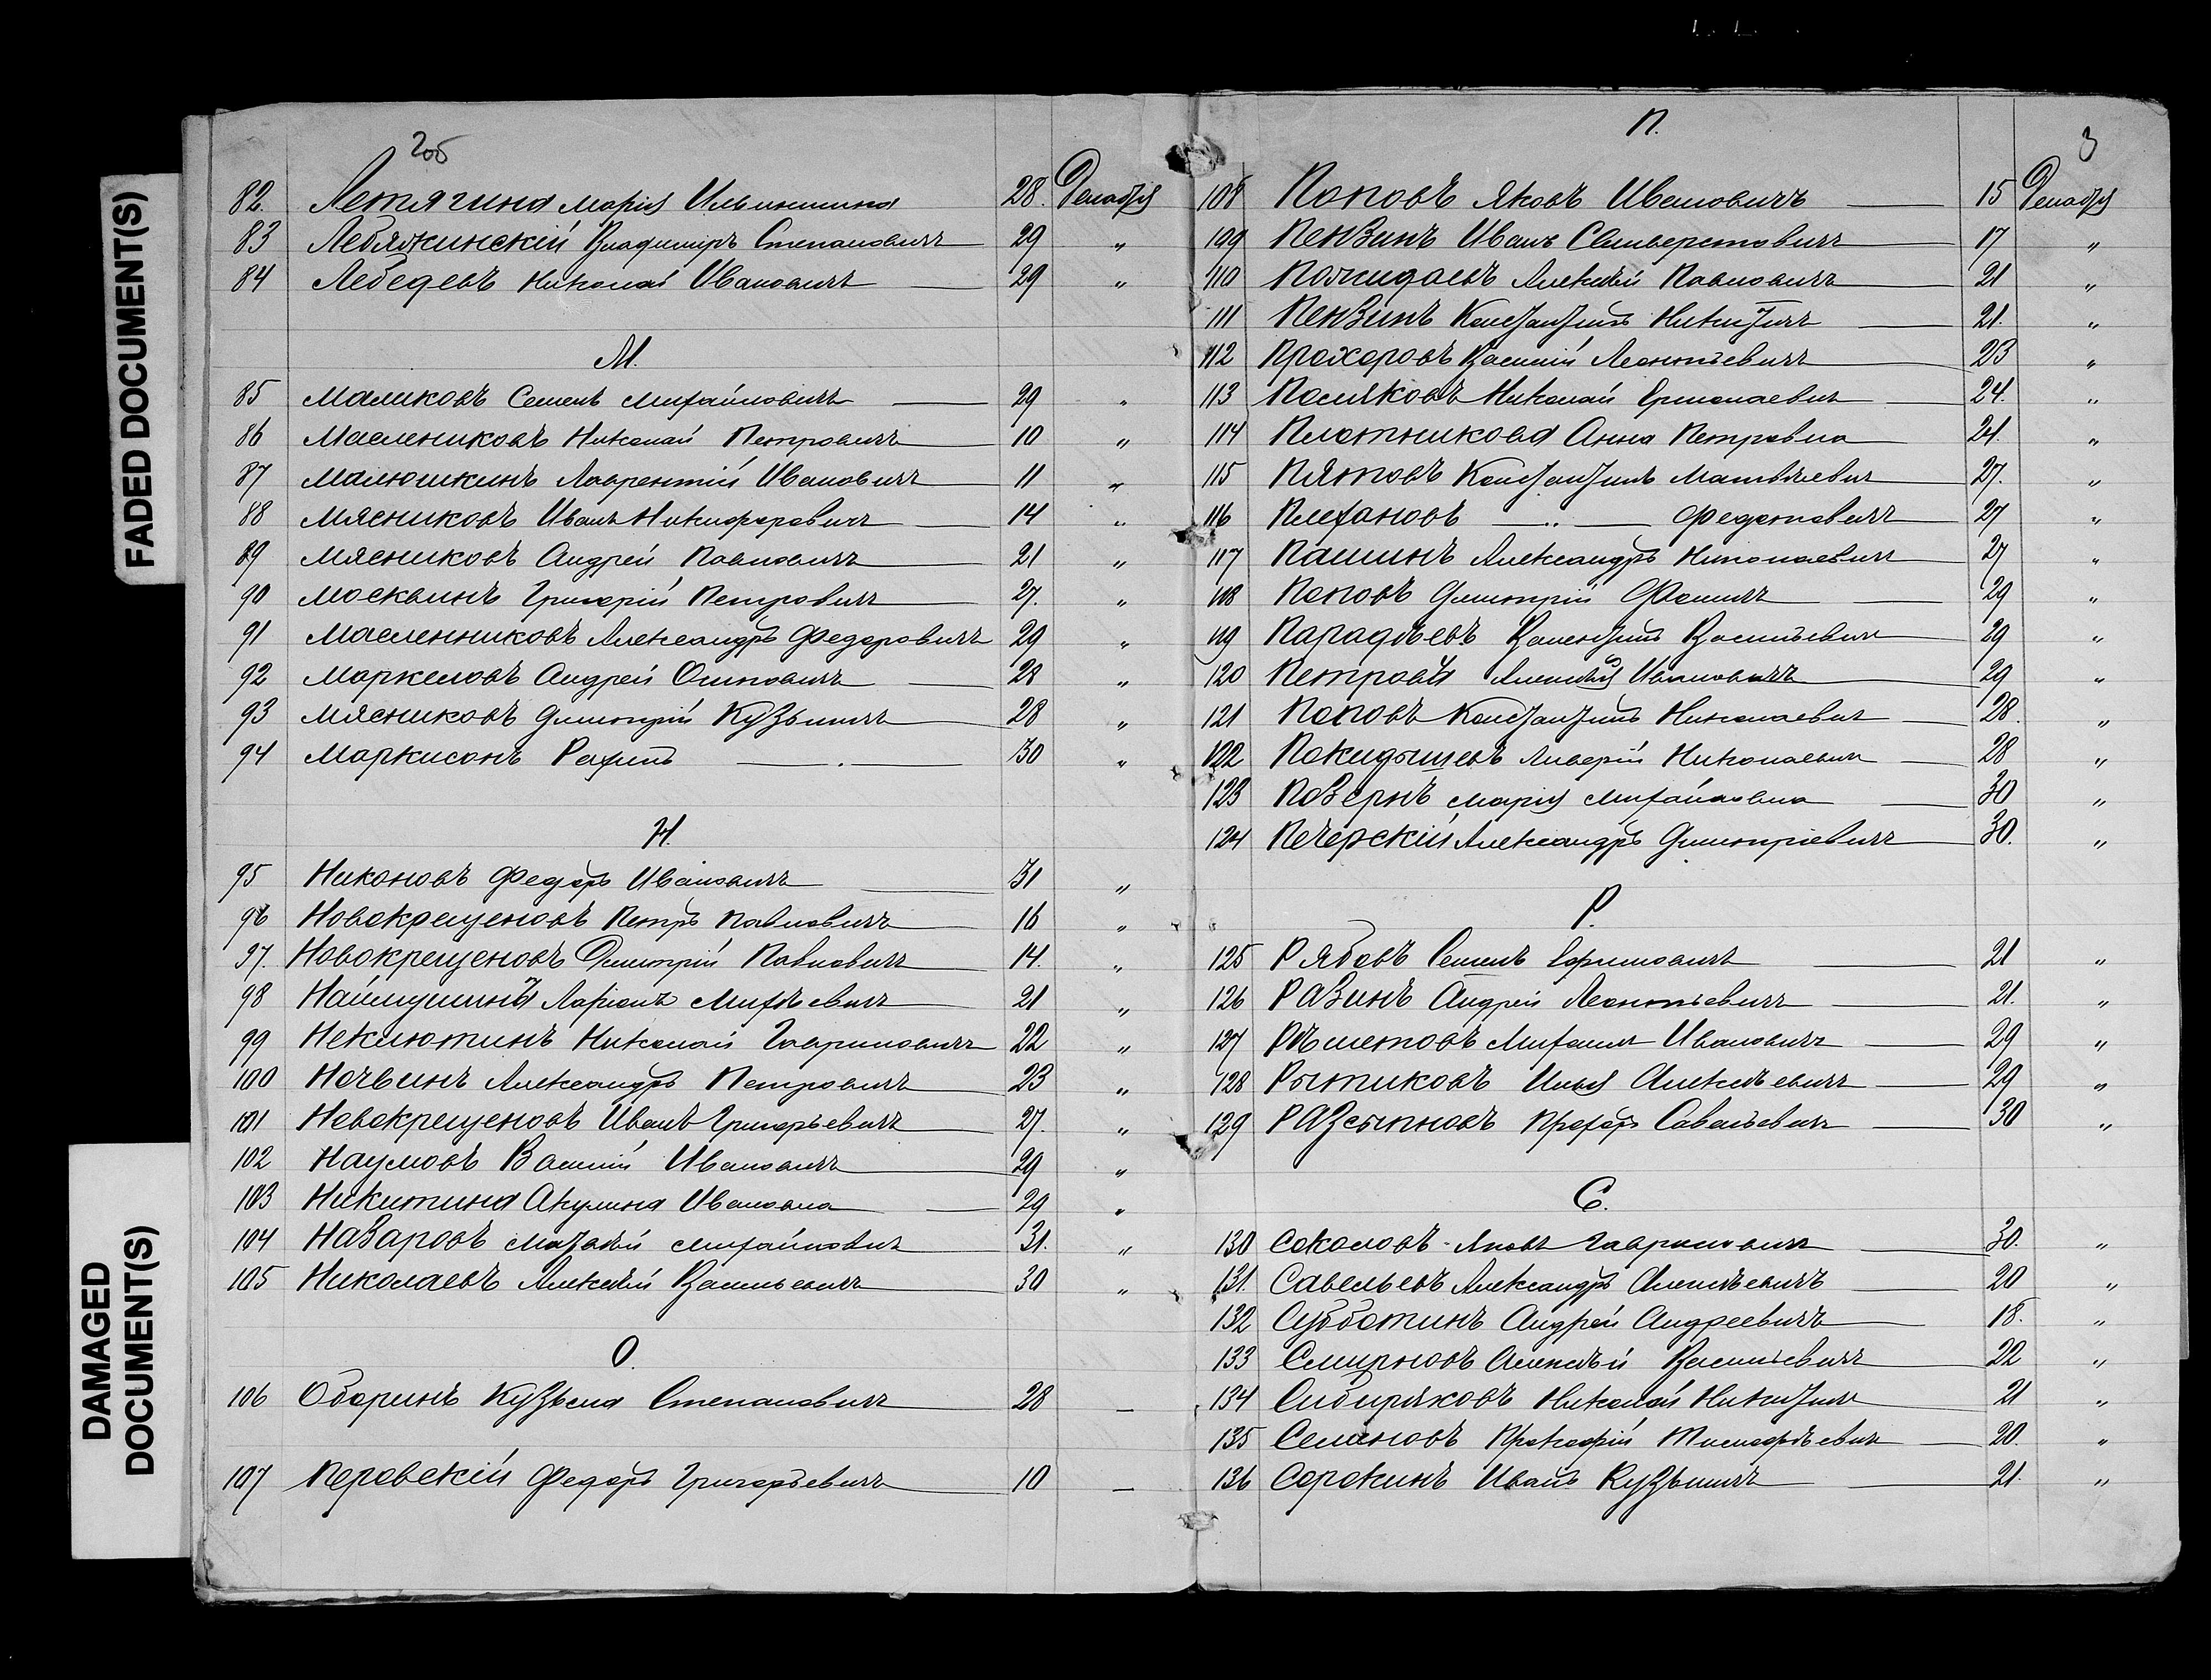 FADED DOCUMENT(S)
DAMAGED
DOCUMENT(S)
2об
82. Летягина Марія Ильинишна 28. Декабря
83 Лебяжинскій Владиміръ Степановичъ 29 "
84 Лебедевъ Николай Ивановичъ 29 "
М.
85 Маликовъ Семенъ Михайловичъ 29 "
86 Маслениковъ Николай Петровичъ 10 "
87 Малюшкинъ Лаврентій Ивановичъ 11 "
88 Мясниковъ Иванъ Никифоровичъ 14 "
89 Мясниковъ Андрей Павловичъ 21 "
90 Москвинъ Григорій Петровичъ 27. "
91 Масленниковъ Александръ Федоровичъ 29 "
92 Маркеловъ Андрей Осиповичъ 28 "
93 Мясниковъ Дмитрій Кузьмичъ 28 "
94 Маркисонъ 30 "
Н.
95 Никоновъ Федоръ Ивановичъ 31 "
96 Новокрещеновъ Петръ Павловичъ 16 "
97. Новокрещеновъ Дмитрій Павловичъ 14. "
98 Наймушинъ Ларіонъ Михѣевичъ 21 "
99 Неклютинъ Николай Гавриловичъ 22 "
100 Ночвинъ Александръ Петровичъ 23 "
101 Новокрещеновъ Иванъ Григорьевичъ 27. "
102 Наумовъ Василій Ивановичъ 29 "
103 Никитина Акулина Ивановна 29 "
104 Назаровъ Матвѣй Михайловичъ 31. "
105 Николаевъ Алексѣй Васильевичъ 30 "
О.
106 Оборинъ Кузьма Степановичъ 28 —
107 Перовскій Федоръ Григорьевичъ 10 —
П.
3
108 Поповъ Яковъ Ивановичъ 15 Декабря
109 Пензинъ Иванъ Селиверстовичъ 17 "
110 Пожидаевъ Алексѣй Павловичъ 21 "
111 Пензинъ Константинъ Никитичъ 21. "
112 Прохоровъ Василій Леонтьевичъ 23 "
113 Поляковъ Николай Ермолаевичъ 24. "
114 Плотникова Анна Петровна 24. "
115 Пятовъ Константинъ Матвѣевичъ 27. "
116 Плехановъ — " — Федотовичъ 27 "
117 Пашинъ Александръ Николаевичъ 27 "
118 Поповъ Дмитрій Фомичъ 29 "
119 Парадѣевъ Валентинъ Васильевичъ 29 "
120 Петровъ Алексѣй Ивановичъ 29 "
121 Поповъ Константинъ Николаевичъ 28. "
122 Покидышевъ Ливерій Николаевичъ 28 "
123 Позернъ Марія Михайловна 30 "
124 Печерскій Александръ Дмитріевичъ 30. "
Р.
125 Рябовъ Семенъ Ефимовичъ 21 "
126 Разинъ Андрей Леонтьевичъ 21. "
127 Рѣшетовъ Михаилъ Ивановичъ 29 "
128 Рытиковъ Илья Алексѣевичъ 29 "
129 Разсыпновъ Прохоръ Савельевичъ 30 "
С.
130 Соколовъ Яковъ Гавриловичъ 30. "
131. Савельевъ Александръ Алексѣевичъ 20 "
132 Субботинъ Андрей Андреевичъ 18. "
133 Смирновъ Алексѣй Васильевичъ 22 "
134 Сибиряковъ Николай Никитичъ 21 "
135 Семановъ Прокофій Тимофѣевичъ 20. "
136 Сорокинъ Иванъ Кузьмичъ 21. "